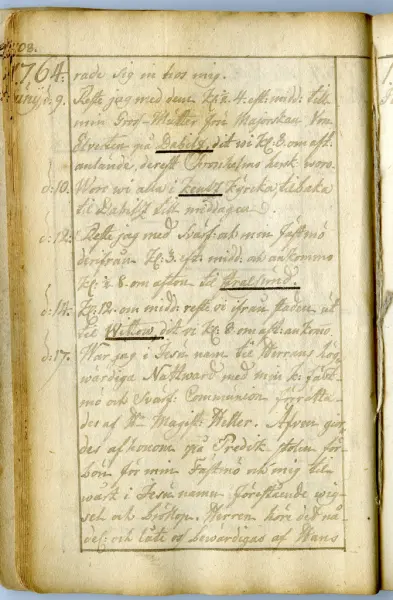 108.
1764. rade sig en hos mig.
Junij d: 9. Reste jag med dem Kl: 4. eft: midd: till
min Gros-Mutter fru Majorskan Von
på Dabitz, dit vi Kl: 8. om aft:
anlände, derest Cronhelms herrsk: woro.
d: 10. Wore wi alla i kyrcka, tilbaka
til Dabitz till middagen.
d: 12. Reste jag med Swärf: och min Fästmö
derifrån Kl: 3. eft: midd: och ankommo
Kl: 8. om afton til Stralsund.
d: 14. Kl: 12. om midd: reste vi ifrån staden ut
til Wittow, dit vi Kl: 8. om aft: ankomo.
d: 17. War jag i Jesu namn til Herrans hög-
wärdiga Nattward med min k: fäst-
mö och Swärf: Communion förrätta-
des af Hr Magist: Welter. Äfven gior-
des af honom på Predik stolen för-
bön för min Fästmo och mig til
wårt i Jesu namn förestående wig-
sel och bröllop. Herren höre det nå-
del: och låte os bewärdigas af Hans